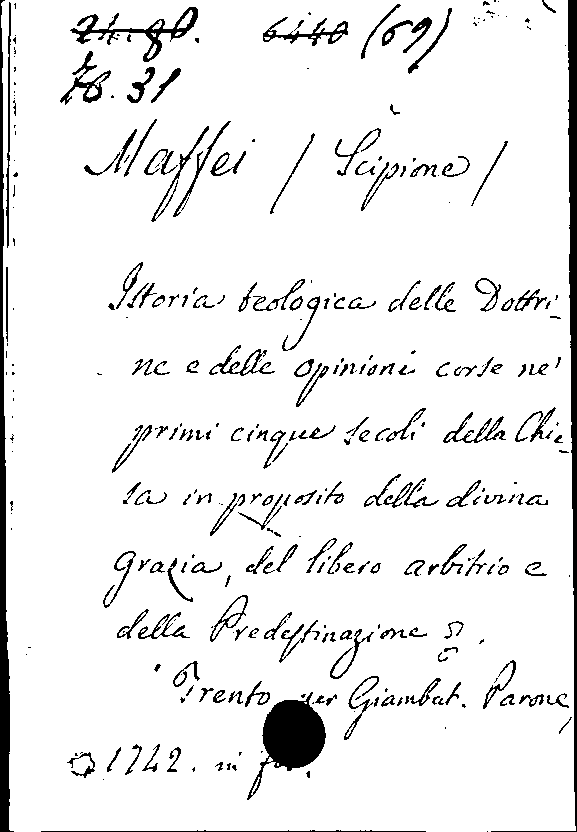 24.gl. 6440 (69)
28.31
Maffei / Scipione /
Istoria teologica delle Dottri-
ne e delle opinioni corse ne'
primi cinque secoli della Chie-
sa in proposito della divina
grazia, del libero arbitrio e
della Predestinazione
Trento per Giambat. Parone,
1742. in fol.